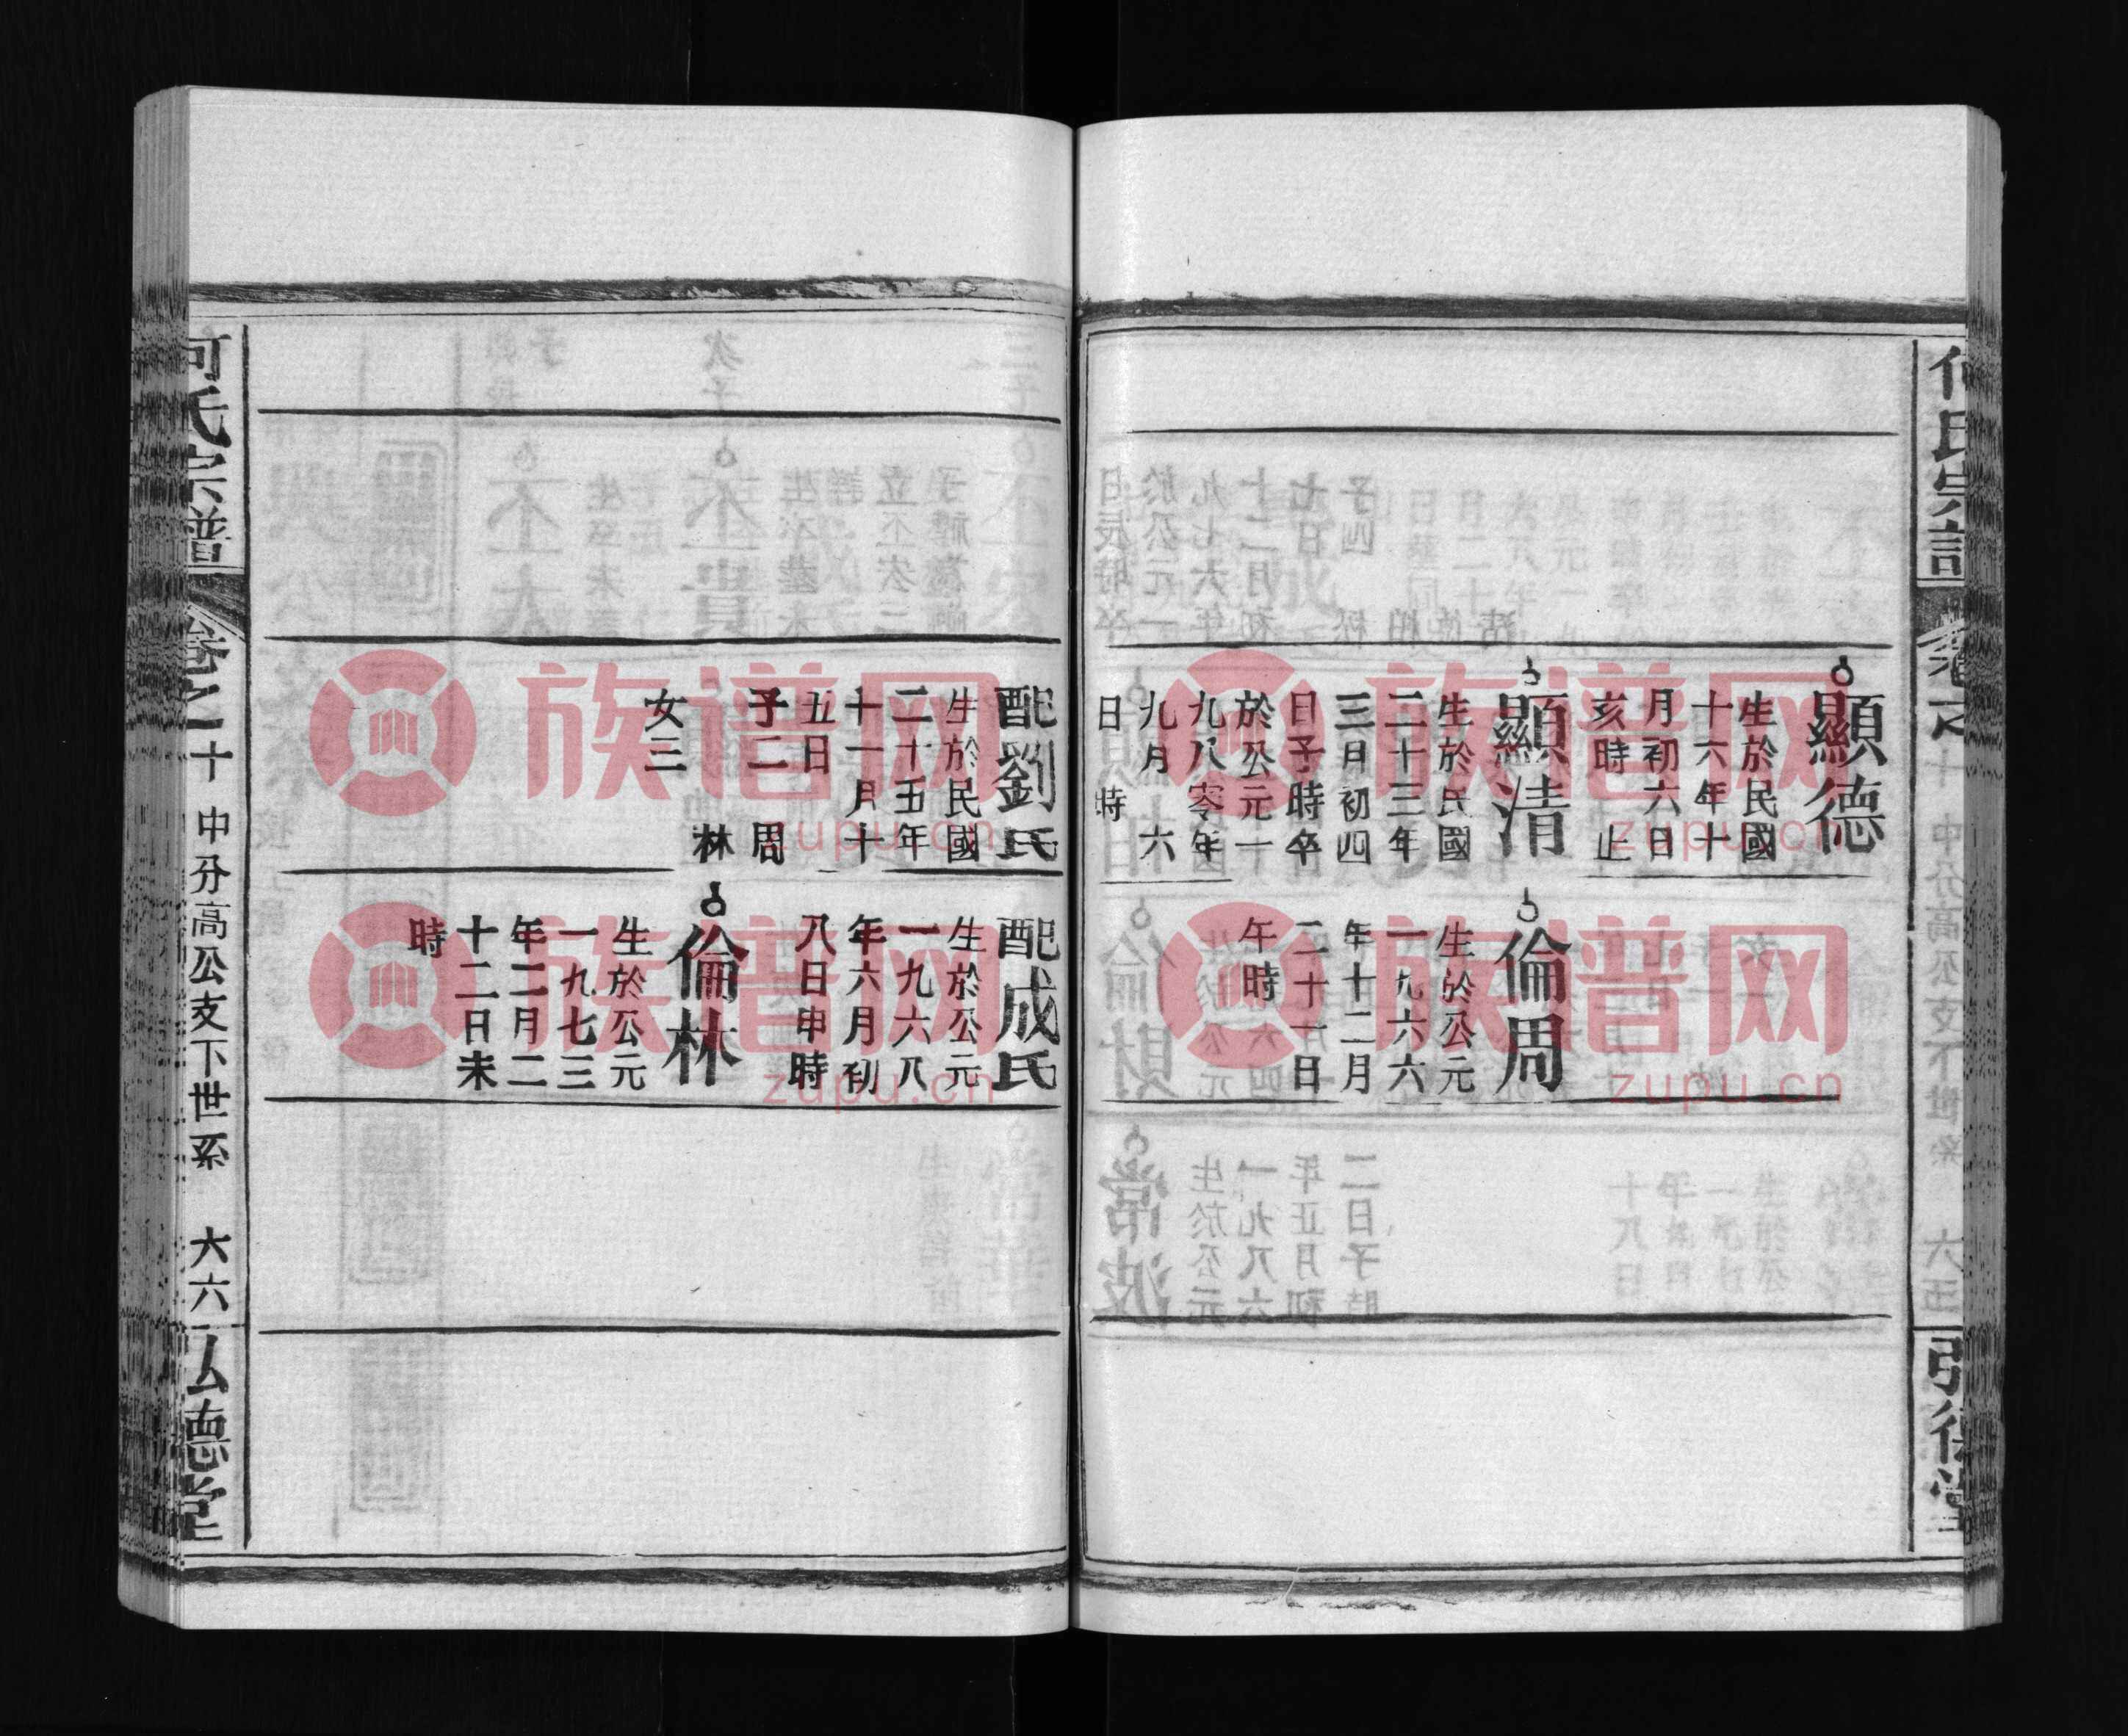 何氏宗譜
顯德
生於民國
十六年十
月初六日
亥時 止
顯清
生於民國
二十三年
三月初四
日子時卒
於公元一
九八零年
九月 六
日 時
倫周
生於公元
一九六六
年十二月
二十一日
午時
配劉氏
生於民國
二十五年
十一月十
五日
子二 周
林
女三
配成氏
生於公元
一九六八
年六月初
八日申時
倫林
生於公元
一九七三
年二月二
十二日未
時
何氏宗譜
卷之十
中分高公支下世系
六六
弘德堂
族谱网
zupu.cn
族谱网
zupu.cn
族谱网
zupu.cn
族谱网
zupu.cn